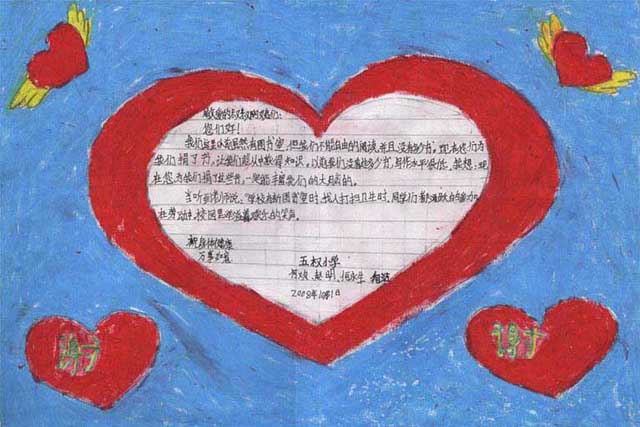 敬爱的叔叔阿姨们:
您们好!
我们这里小前虽然有图书室,但我们不能自由的阅读,并且没有多少书。现在您们为
我们捐了书,让我们能从中取得知识。以前我们没看过多少书,写作水平很低,我想:现
在您为我们捐了这些书,一定能丰富我们的大脑的。
当听到老师说,学校有新图书室时,找人打扫卫生时,同学们
在劳动中,校园里洋溢着欢乐的笑声。
祝身体健康
万事如意
五权小学
赵明
2008年10月1日
谢
谢